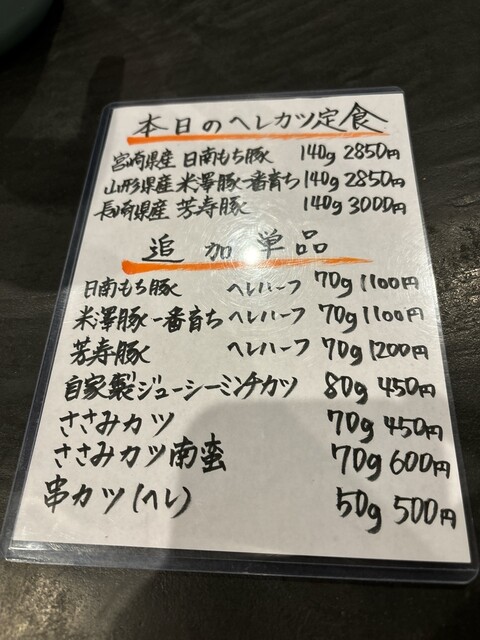 本日のヘレカツ定食
宮崎県産 日南もち豚 140g 2850円
山形県産 米澤豚一番育ち 140g 2850円
長崎県産 芳寿豚 140g 3000円
追加単品
日南もち豚 ヘレハーフ 70g 1100円
米澤豚一番育ち ヘレハーフ 70g 1100円
芳寿豚 ヘレハーフ 70g 1200円
自家製ジューシーミンチカツ 80g 450円
ささみカツ 70g 450円
ささみカツ南蛮 70g 600円
串カツ(ヘレ) 50g 500円